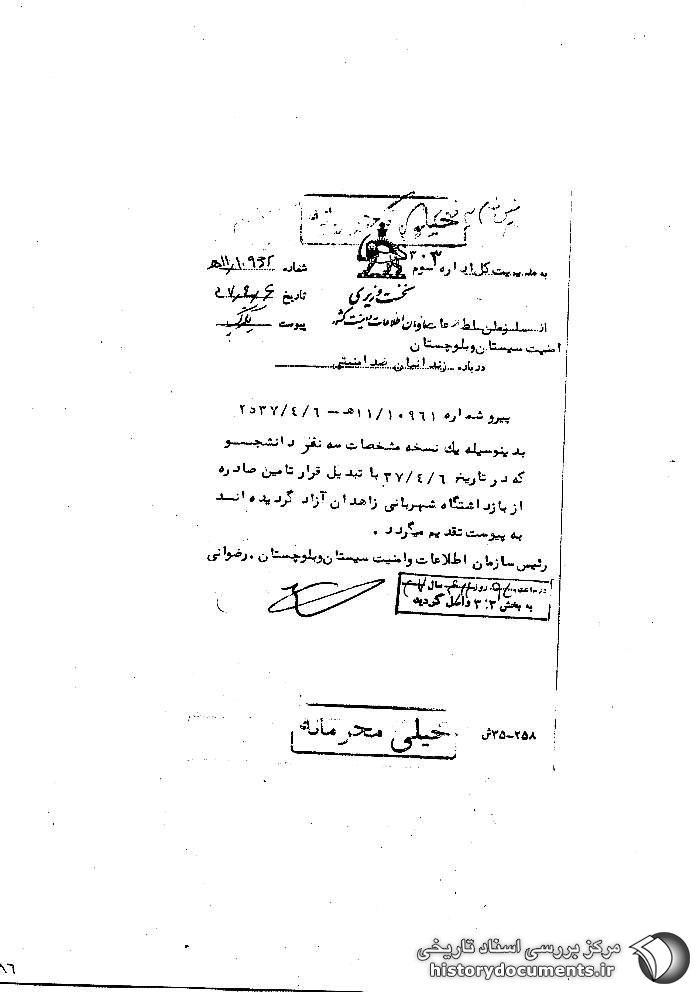 خیلی محرمانه
به مدیریت کل اداره سوم ۳۰۳
شماره
نخست وزیری
تاریخ
از سازمان اطلاعات و امنیت کشور
پیوست
امنیت سیستان و بلوچستان
درباره زندانیان ضد امنیتی
پیرو شماره ۱۱/۱۰۹۶۱هـ – ۲۵۳۷/٤/٦
بدینوسیله یک نسخه مشخصات سه نفر دانشجو
که در تاریخ ۳۷/٤/٦ با تبدیل قرار تامین صادره
از بازداشتگاه شهربانی زاهدان آزاد گردیده اند
به پیوست تقدیم میگردد.
رئیس سازمان اطلاعات و امنیت سیستان و بلوچستان. رضوانی
به بخش ۳۰۳ واصل گردید
خیلی محرمانه
۳۵-۲۵۸ش
مرکز بررسی اسناد تاریخی
historydocuments.ir